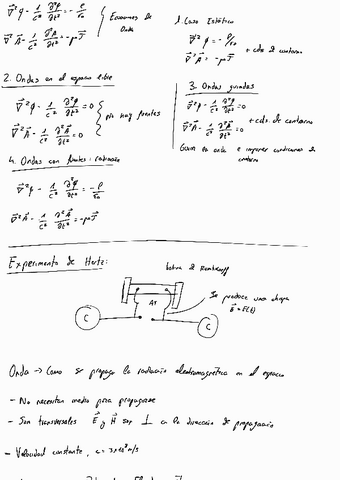 ∇²φ - 1/c² ∂²φ/∂t² = -ρ/ε₀
∇²A⃗ - 1/c² ∂²A⃗/∂t² = -μJ⃗
Ecuaciones de Onda
1. Caso Estático
∇²φ = -ρ/ε₀
∇²A⃗ = -μJ⃗
+ cds de contorno
2. Ondas en el espacio libre
∇²φ - 1/c² ∂²φ/∂t² = 0
∇²A⃗ - 1/c² ∂²A⃗/∂t² = 0
no hay fuentes
3. Ondas guiadas
∇²φ - 1/c² ∂²φ/∂t² = 0
∇²A⃗ - 1/c² ∂²A⃗/∂t² = 0
+ cds. de contorno
Guiar la onda e imponer condiciones de contorno
4. Ondas con fuentes: radiación
∇²φ - 1/c² ∂²φ/∂t² = -ρ/ε₀
∇²A⃗ - 1/c² ∂²A⃗/∂t² = -μJ⃗
Experimento de Hertz:
bobina de
Se produce una chispa
C
C
Onda → Como se propaga la radiación electromagnética en el espacio
- No necesitan medio para propagarse
- Son transversales E⃗ y H⃗ son ⊥ a la dirección de propagación
- Velocidad constante, c = 3×10⁸ m/s